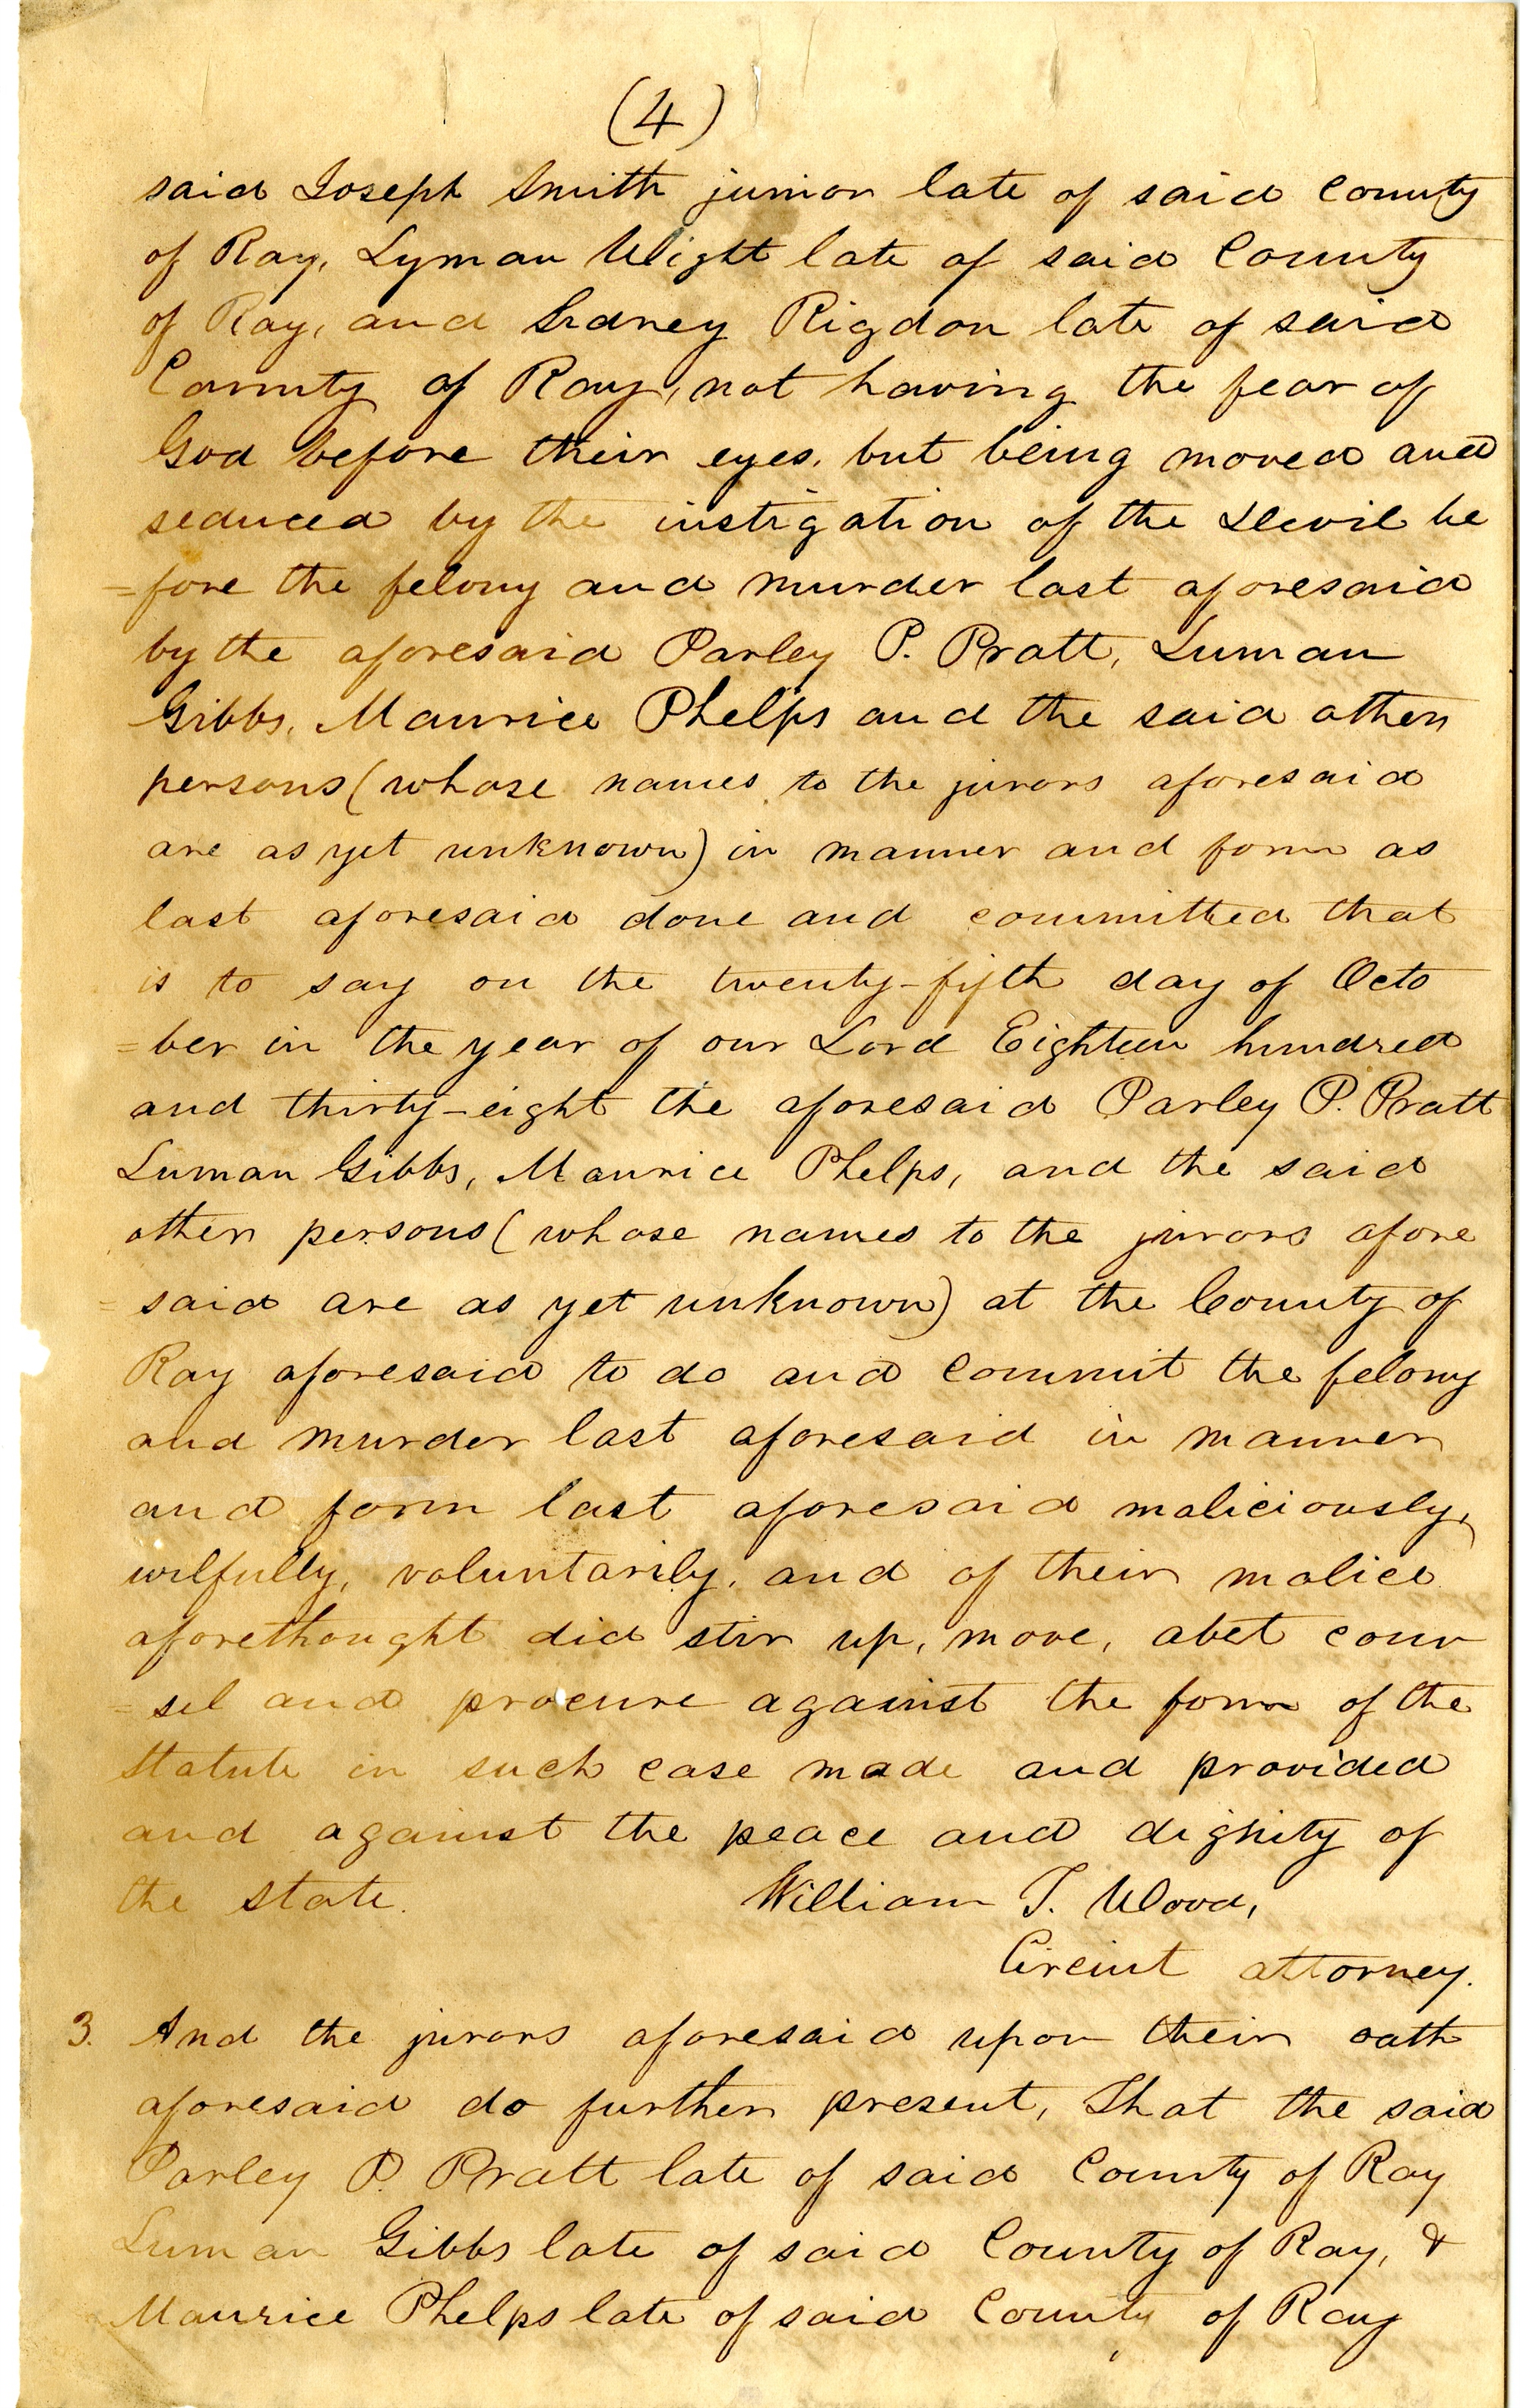 (4)
said Joseph Smith junior late of said County
of Ray, Lyman Wight late of said County
of Ray, and Sidney Rigdon late of said
County of Ray, not having the fear of
God before their eyes, but being moved and
seduced by the instigation of the Devil be
=fore the felony and murder last aforesaid
by the aforesaid Parley P. Pratt, Luman
Gibbs, Maurice Phelps and the said other
persons (whose names to the jurors aforesaid
are as yet unknown) in manner and form as
last aforesaid done and committed that
is to say on the twenty-fifth day of Octo
=ber in the year of our Lord Eighteen hundred
and thirty-eight the aforesaid Parley P. Pratt
Luman Gibbs, Maurice Phelps, and the said
other persons (whose names to the jurors afore
=said are as yet unknown) at the County of
Ray aforesaid to do and commit the felony
and murder last aforesaid in manner
and form last aforesaid maliciously,
wilfully, voluntarily, and of their malice
aforethought did stir up, move, abet coun
=sel and procure against the form of the
statute in such case made and provided
and against the peace and dignity of
the state. William T. Wood,
Circuit attorney.
3. And the jurors aforesaid upon their oath
aforesaid do further present, That the said
Parley P. Pratt late of said County of Ray
Luman Gibbs late of said County of Ray, &
Maurice Phelps late of said County of Ray